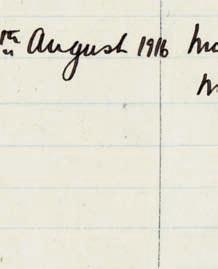 th August 1916